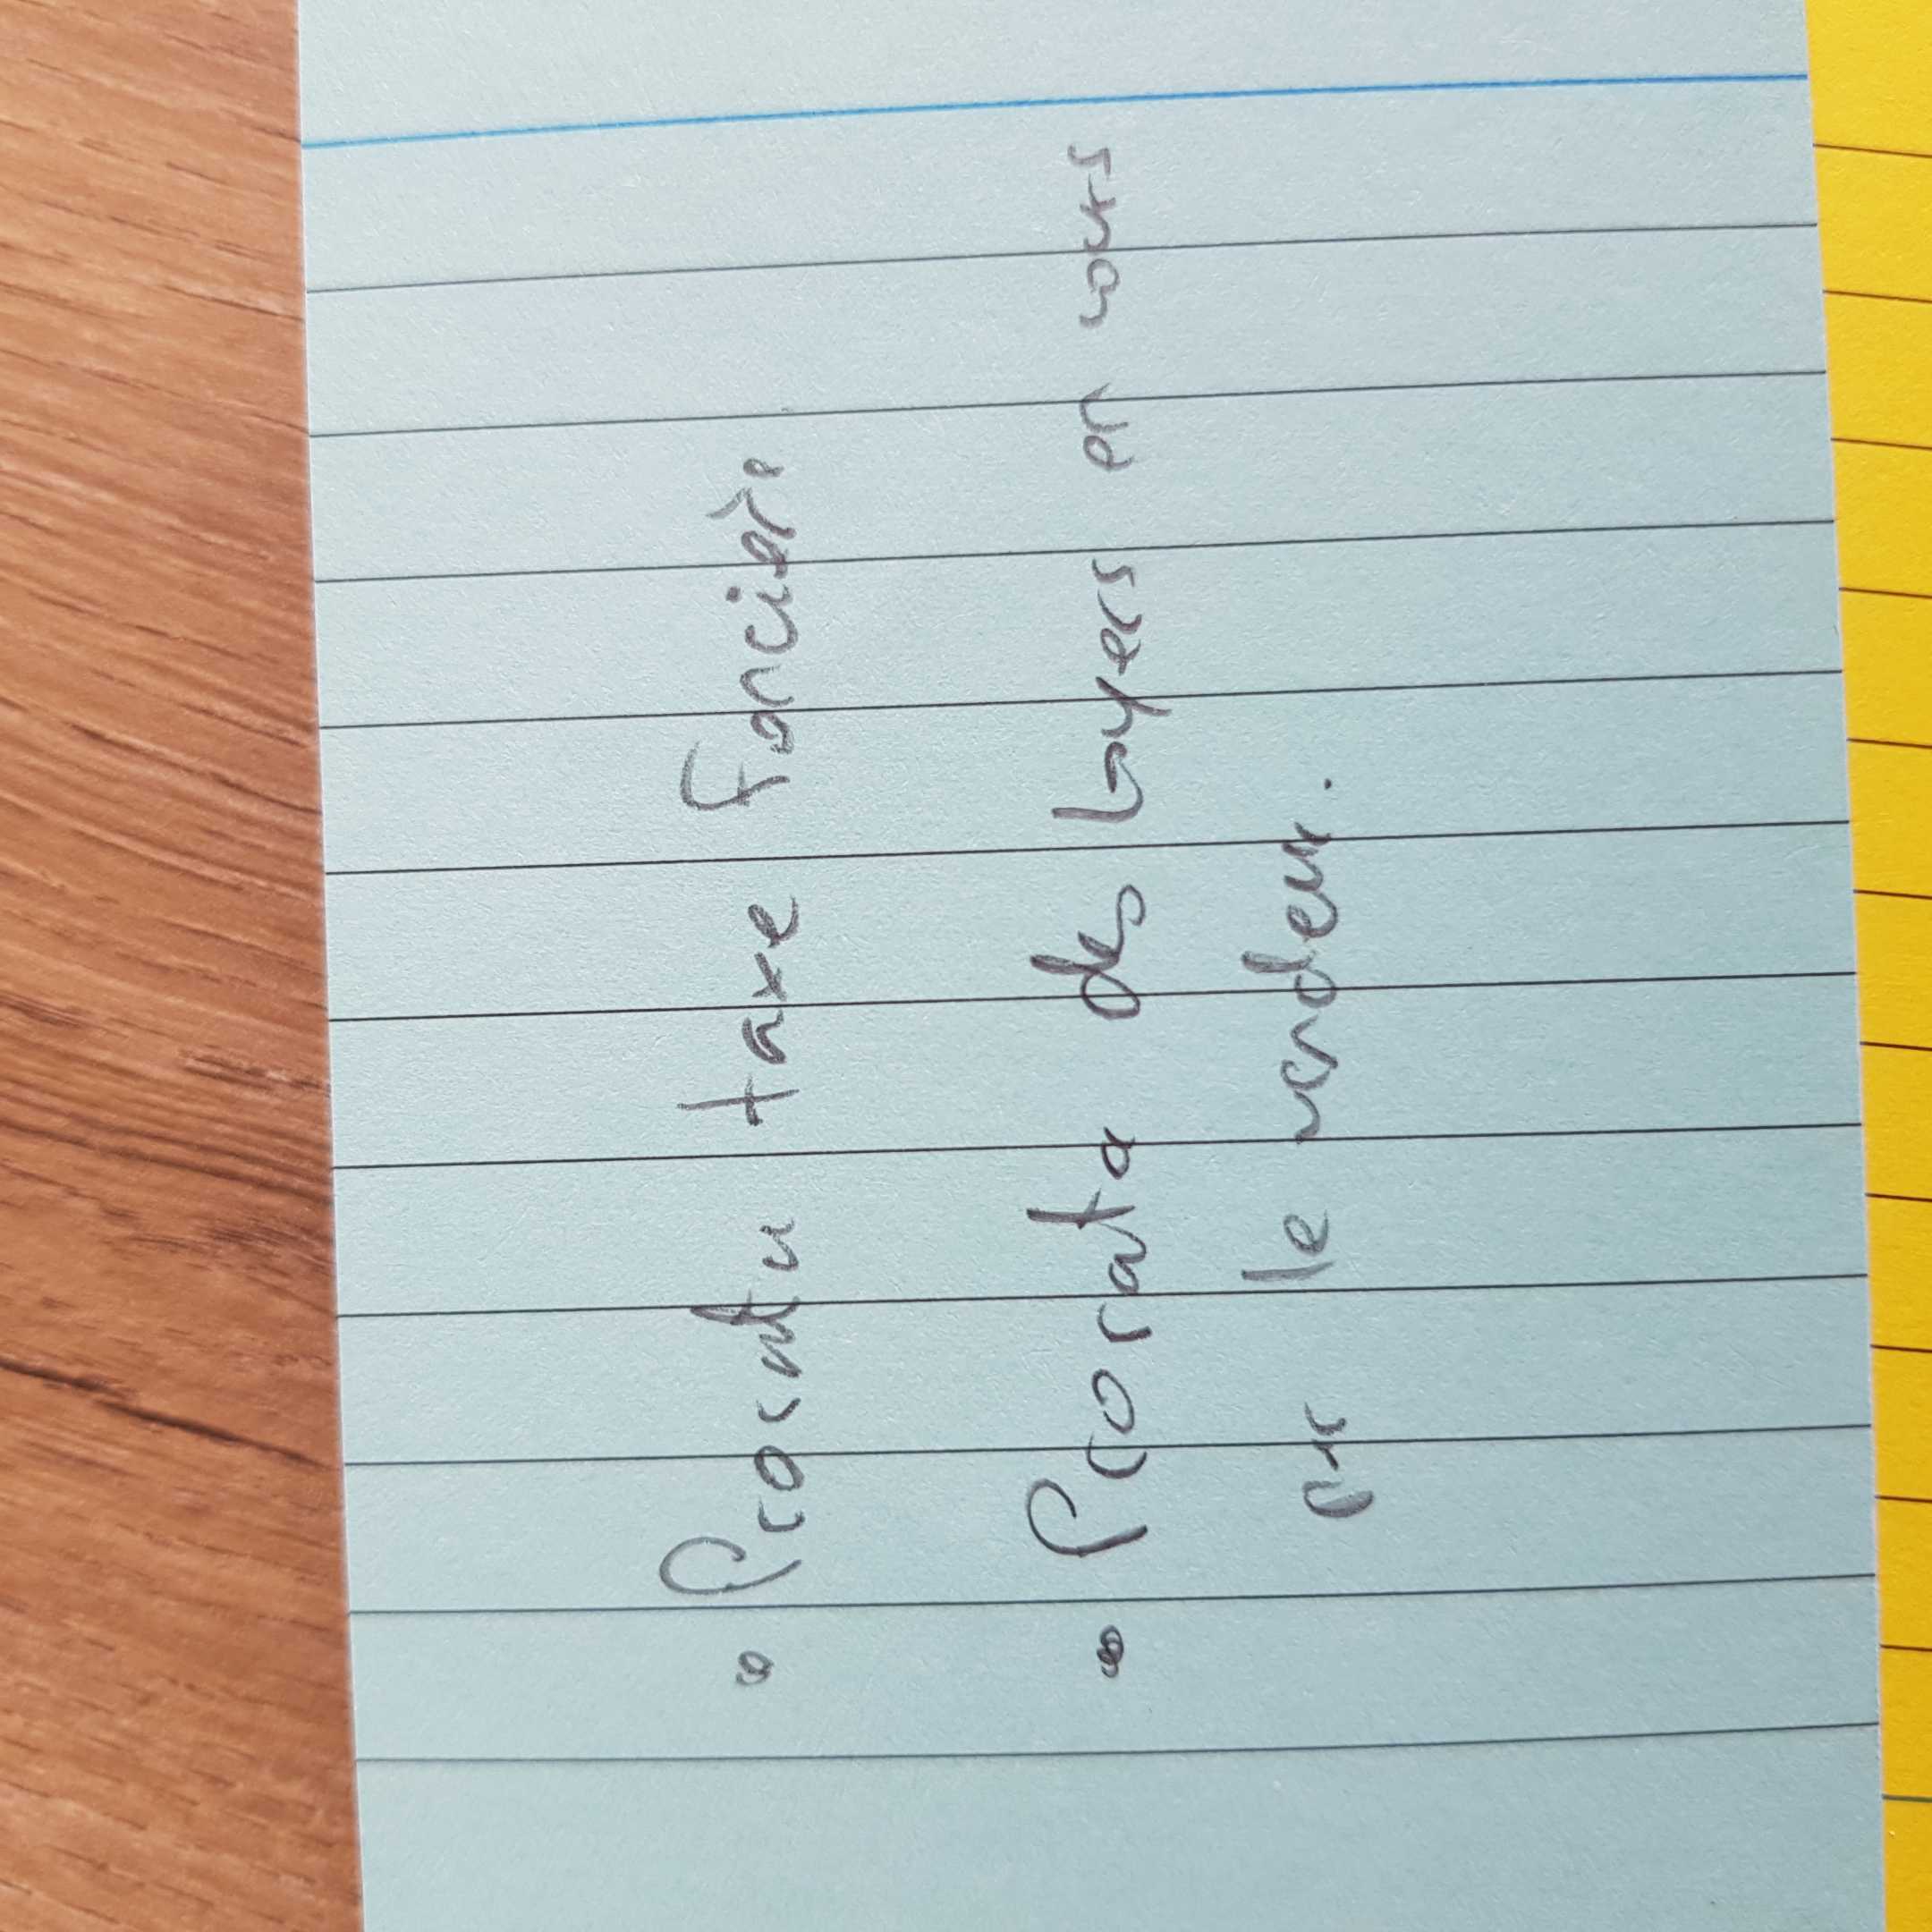 • Prorata taxe foncière
• Prorata des loyers en cours
par le vendeur.